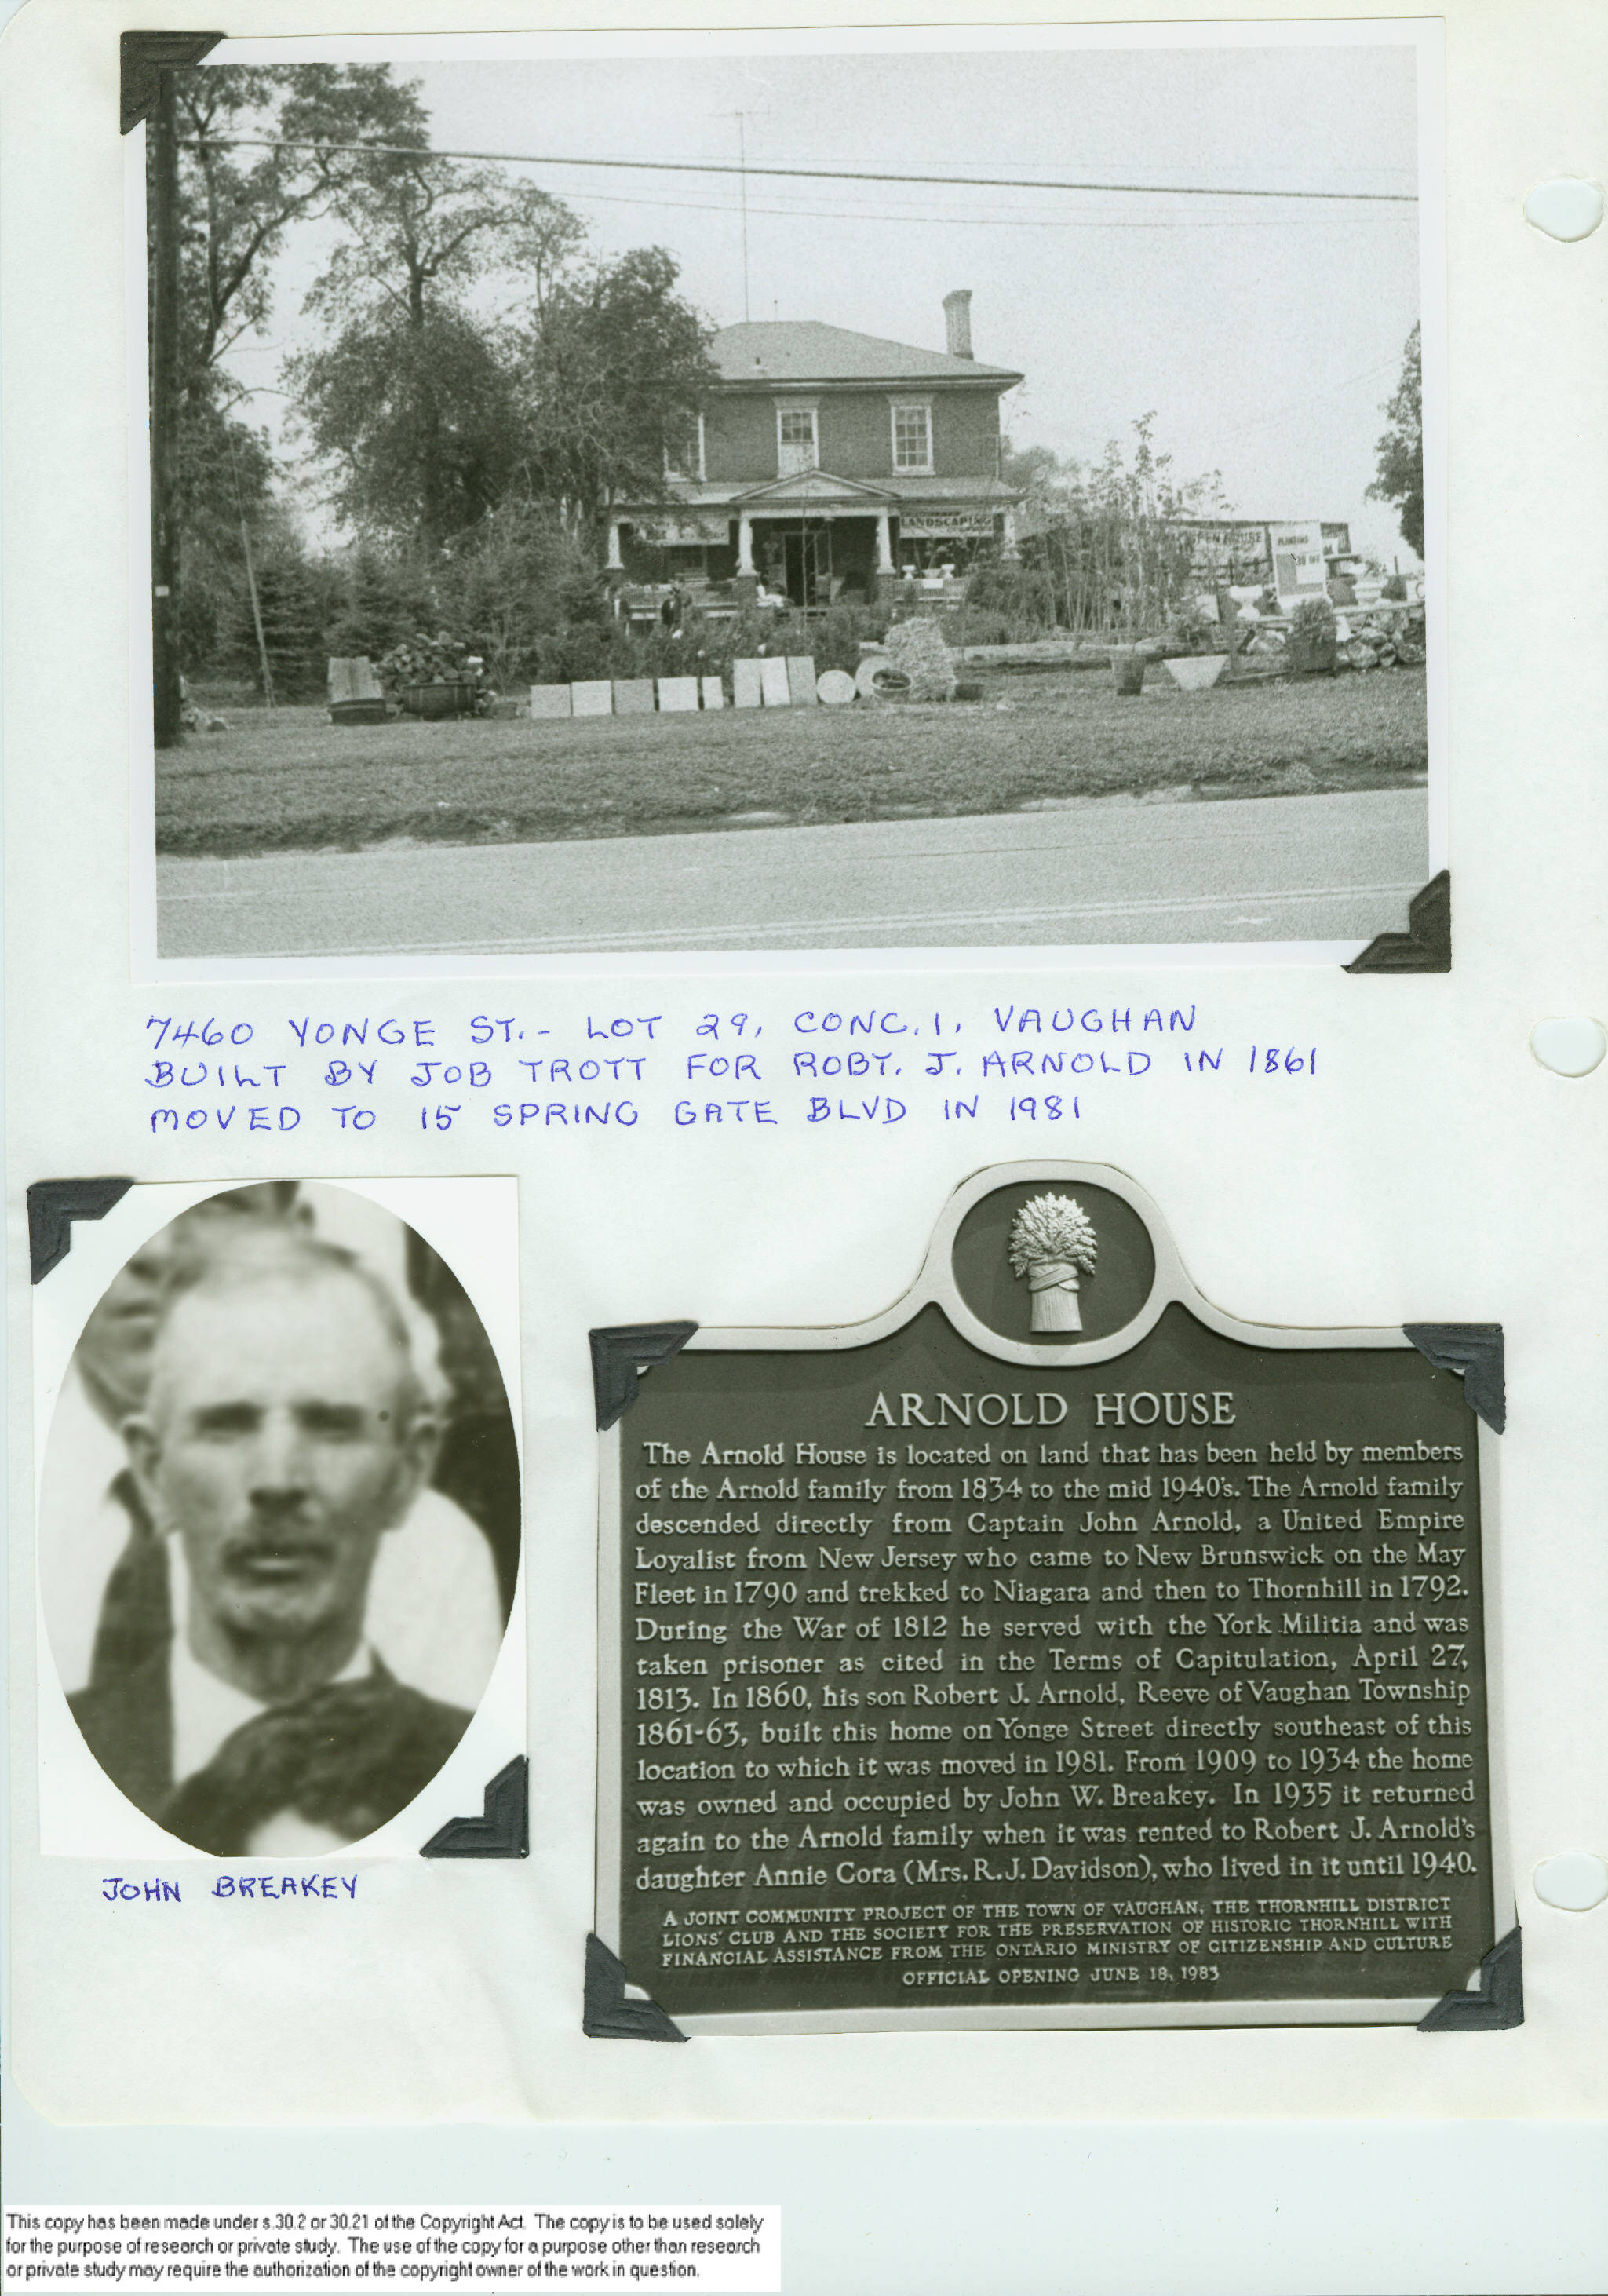 LANDSCAPING
OPEN HOUSE
7460 YONGE ST. - LOT 29, CONC. 1, VAUGHAN
BUILT BY JOB TROTT FOR ROBT. J. ARNOLD IN 1861
MOVED TO 15 SPRING GATE BLVD IN 1981
JOHN BREAKEY
ARNOLD HOUSE
The Arnold House is located on land that has been held by members
of the Arnold family from 1834 to the mid 1940's. The Arnold family
descended directly from Captain John Arnold, a United Empire
Loyalist from New Jersey who came to New Brunswick on the May
Fleet in 1790 and trekked to Niagara and then to Thornhill in 1792.
During the War of 1812 he served with the York Militia and was
taken prisoner as cited in the Terms of Capitulation, April 27,
1813. In 1860, his son Robert J. Arnold, Reeve of Vaughan Township
1861-63, built this home on Yonge Street directly southeast of this
location to which it was moved in 1981. From 1909 to 1934 the home
was owned and occupied by John W. Breakey. In 1935 it returned
again to the Arnold family when it was rented to Robert J. Arnold's
daughter Annie Cora (Mrs. R. J. Davidson), who lived in it until 1940.
A JOINT COMMUNITY PROJECT OF THE TOWN OF VAUGHAN, THE THORNHILL DISTRICT
LIONS' CLUB AND THE SOCIETY FOR THE PRESERVATION OF HISTORIC THORNHILL WITH
FINANCIAL ASSISTANCE FROM THE ONTARIO MINISTRY OF CITIZENSHIP AND CULTURE
OFFICIAL OPENING JUNE 18, 1983
This copy has been made under s.30.2 or 30.21 of the Copyright Act. The copy is to be used solely
for the purpose of research or private study. The use of the copy for a purpose other than research
or private study may require the authorization of the copyright owner of the work in question.